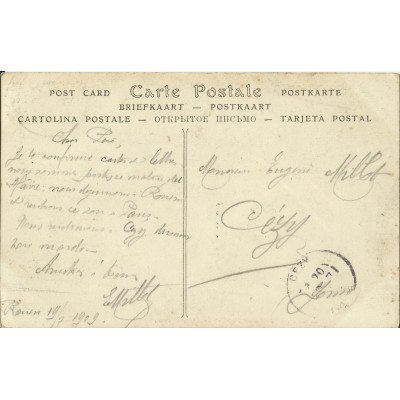 POST CARD Carte Postale POSTKARTE
BRIEFKAART — POSTKAART
CARTOLINA POSTALE — ОТКРЫТОЕ ПИСЬМО — TARJETA POSTAL
Cher Père,
Je te confirme carte & lettre
nous sommes partis ce matin du
Hâvre. nous déjeunons à Rouen
& rentrons ce soir à Paris.
Nous rentrerons à Cézy
ou mardi.
Amitiés à tous
EMillot
Rouen 19/ 1909
Monsieur Eugène Millot
Cézy
Yonne
CEZY